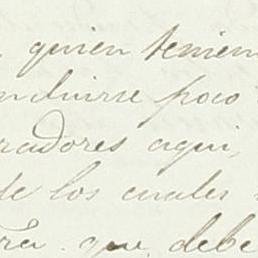 quien tenien
nduirse poco
radores aqui,
de los cuales
tra que debe